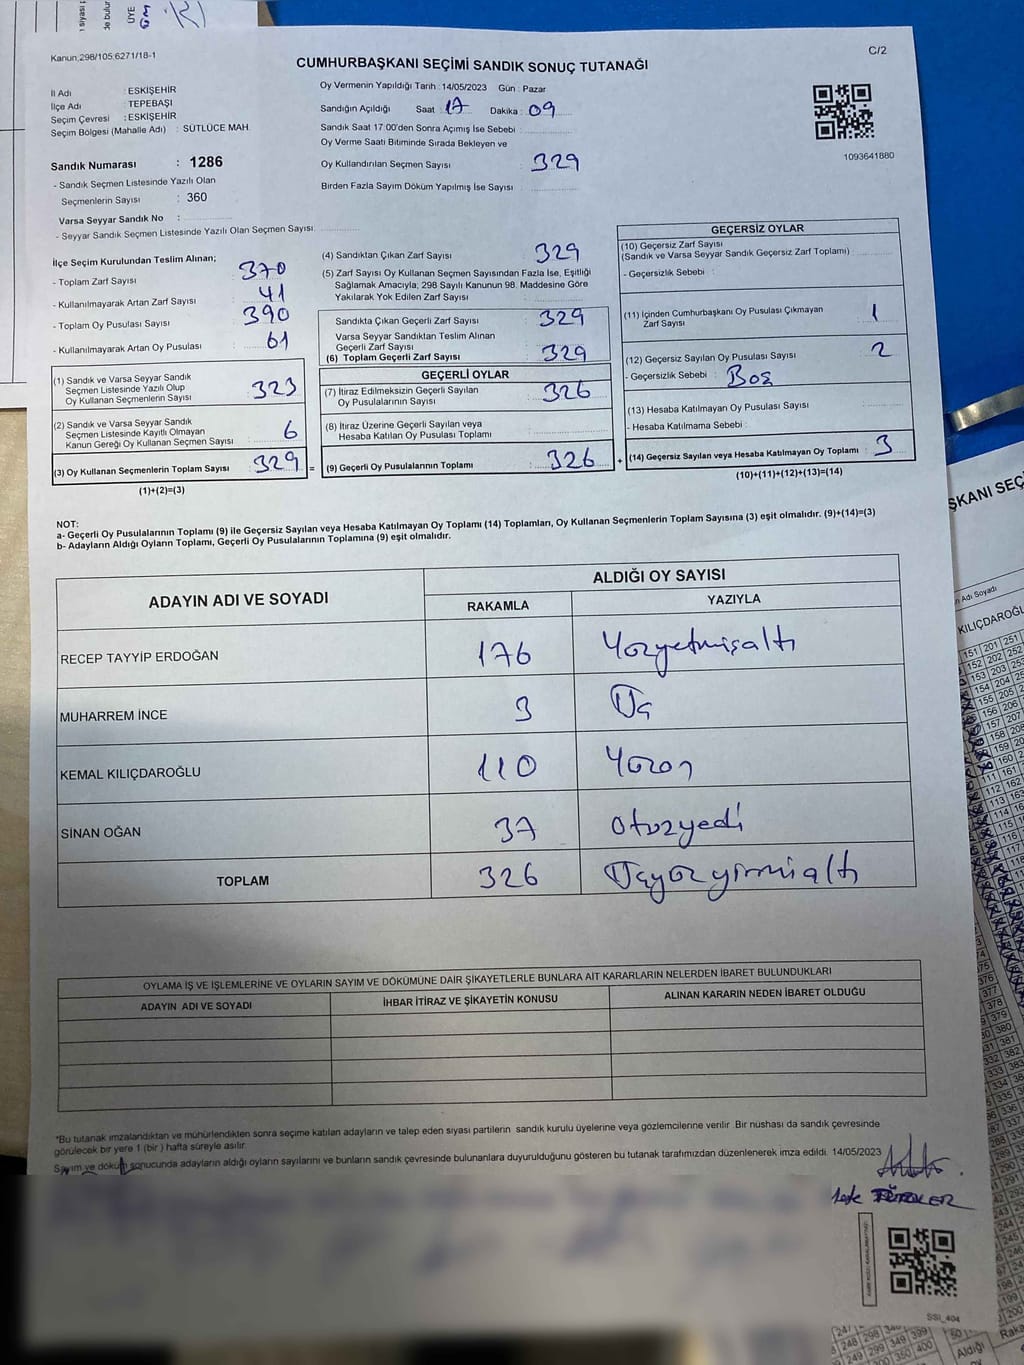 Kanun;298/105;6271/18-1
C/2
CUMHURBAŞKANI SEÇİMİ SANDIK SONUÇ TUTANAĞI
İl Adı : ESKİŞEHİR
İlçe Adı : TEPEBAŞI
Seçim Çevresi : ESKİŞEHİR
Seçim Bölgesi (Mahalle Adı) : SÜTLÜCE MAH.
Sandık Numarası : 1286
- Sandık Seçmen Listesinde Yazılı Olan
Seçmenlerin Sayısı : 360
Varsa Seyyar Sandık No :
- Seyyar Sandık Seçmen Listesinde Yazılı Olan Seçmen Sayısı:
Oy Vermenin Yapıldığı Tarih : 14/05/2023 Gün : Pazar
Sandığın Açıldığı Saat : 17 Dakika : 09
Sandık Saat 17:00'den Sonra Açımış İse Sebebi :
Oy Verme Saati Bitiminde Sırada Bekleyen ve
Oy Kullandırılan Seçmen Sayısı : 329
Birden Fazla Sayım Döküm Yapılmış İse Sayısı :
1093641880
İlçe Seçim Kurulundan Teslim Alınan;
- Toplam Zarf Sayısı : 370
- Kullanılmayarak Artan Zarf Sayısı : 41
- Toplam Oy Pusulası Sayısı : 390
- Kullanılmayarak Artan Oy Pusulası : 61
(1) Sandık ve Varsa Seyyar Sandık
Seçmen Listesinde Yazılı Olup
Oy Kullanan Seçmenlerin Sayısı : 323
(2) Sandık ve Varsa Seyyar Sandık
Seçmen Listesinde Kayıtlı Olmayan
Kanun Gereği Oy Kullanan Seçmen Sayısı : 6
(3) Oy Kullanan Seçmenlerin Toplam Sayısı : 329 =
(1)+(2)=(3)
(4) Sandıktan Çıkan Zarf Sayısı : 329
(5) Zarf Sayısı Oy Kullanan Seçmen Sayısından Fazla İse, Eşitliği
Sağlamak Amacıyla; 298 Sayılı Kanunun 98. Maddesine Göre
Yakılarak Yok Edilen Zarf Sayısı :
Sandıkta Çıkan Geçerli Zarf Sayısı : 329
Varsa Seyyar Sandıktan Teslim Alınan
Geçerli Zarf Sayısı :
(6) Toplam Geçerli Zarf Sayısı : 329
GEÇERLİ OYLAR
(7) İtiraz Edilmeksizin Geçerli Sayılan
Oy Pusulalarının Sayısı : 326
(8) İtiraz Üzerine Geçerli Sayılan veya
Hesaba Katılan Oy Pusulası Toplamı :
(9) Geçerli Oy Pusulalarının Toplamı : 326 +
GEÇERSİZ OYLAR
(10) Geçersiz Zarf Sayısı
(Sandık ve Varsa Seyyar Sandık Geçersiz Zarf Toplamı) :
- Geçersizlik Sebebi :
(11) İçinden Cumhurbaşkanı Oy Pusulası Çıkmayan
Zarf Sayısı : 1
(12) Geçersiz Sayılan Oy Pusulası Sayısı : 2
- Geçersizlik Sebebi : Boş
(13) Hesaba Katılmayan Oy Pusulası Sayısı :
- Hesaba Katılmama Sebebi :
(14) Geçersiz Sayılan veya Hesaba Katılmayan Oy Toplamı : 3
(10)+(11)+(12)+(13)=(14)
NOT:
a- Geçerli Oy Pusulalarının Toplamı (9) ile Geçersiz Sayılan veya Hesaba Katılmayan Oy Toplamı (14) Toplamları, Oy Kullanan Seçmenlerin Toplam Sayısına (3) eşit olmalıdır. (9)+(14)=(3)
b- Adayların Aldığı Oyların Toplamı, Geçerli Oy Pusulalarının Toplamına (9) eşit olmalıdır.
ADAYIN ADI VE SOYADI
ALDIĞI OY SAYISI
RAKAMLA YAZIYLA
RECEP TAYYİP ERDOĞAN 176 Yüzyetmişaltı
MUHARREM İNCE 3 Üç
KEMAL KILIÇDAROĞLU 110 Yüzon
SİNAN OĞAN 37 Otuzyedi
TOPLAM 326 Üçyüzyirmialtı
OYLAMA İŞ VE İŞLEMLERİNE VE OYLARIN SAYIM VE DÖKÜMÜNE DAİR ŞİKAYETLERLE BUNLARA AİT KARARLARIN NELERDEN İBARET BULUNDUKLARI
ADAYIN ADI VE SOYADI İHBAR İTİRAZ VE ŞİKAYETİN KONUSU ALINAN KARARIN NEDEN İBARET OLDUĞU
*Bu tutanak imzalandıktan ve mühürlendikten sonra seçime katılan adayların ve talep eden siyasi partilerin sandık kurulu üyelerine veya gözlemcilerine verilir. Bir nüshası da sandık çevresinde
görülecek bir yere 1 (bir) hafta süreyle asılır.
Sayım ve döküm sonucunda adayların aldığı oyların sayılarını ve bunların sandık çevresinde bulunanlara duyurulduğunu gösteren bu tutanak tarafımızdan düzenlenerek imza edildi. 14/05/2023
SSI_404